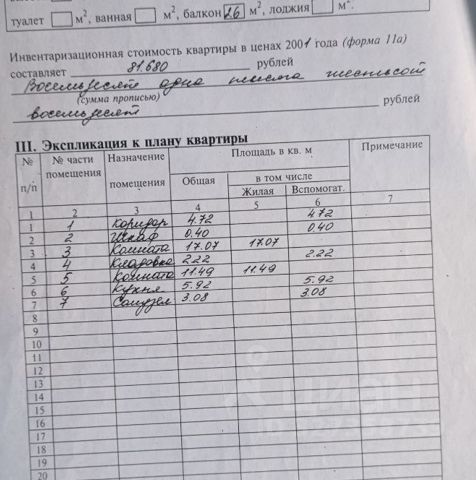 туалет м², ванная м², балкон 2.6 м², лоджия м².
Инвентаризационная стоимость квартиры в ценах 2001 года (форма 11а)
составляет 81.680 рублей
Восемьдесят одна тысяча шестьсот
(сумма прописью)
восемьдесят рублей
III. Экспликация к плану квартиры
№ п/п № части помещения Назначение помещения Площадь в кв. м Примечание
Общая в том числе
Жилая Вспомогат.
1 2 3 4 5 6 7
1 1 Коридор 4.72 4.72
2 2 Шкаф 0.40 0.40
3 3 Комната 17.07 17.07
4 4 Кладовка 2.22 2.22
5 5 Комната 11.49 11.49
6 6 Кухня 5.92 5.92
7 7 Санузел 3.08 3.08
8
9
10
11
12
13
14
15
16
17
18
19
20